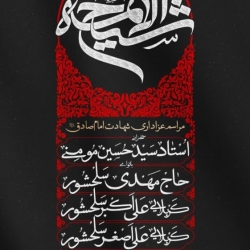 شیخ الائمه
مراسم عزاداری شهادت امام صادق
سخنران
استاد سید حسین مومنی
بانوای
حاج مهدی سلحشور
کربلایی علی اکبر سلحشور
کربلایی علی اصغر سلحشور